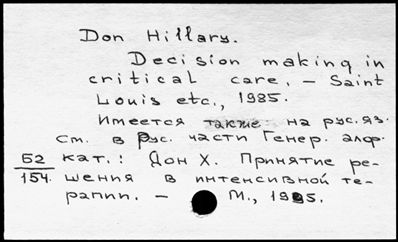 Don Hillary.
Decision making in
critical care. – Saint
Louis etc., 1985.
Имеется также на рус.яз.
см. в Рус. части Генер. алф.
Б2 кат.: Дон Х. Принятие ре-
154. шения в интенсивной те-
рапии. – М., 1995.